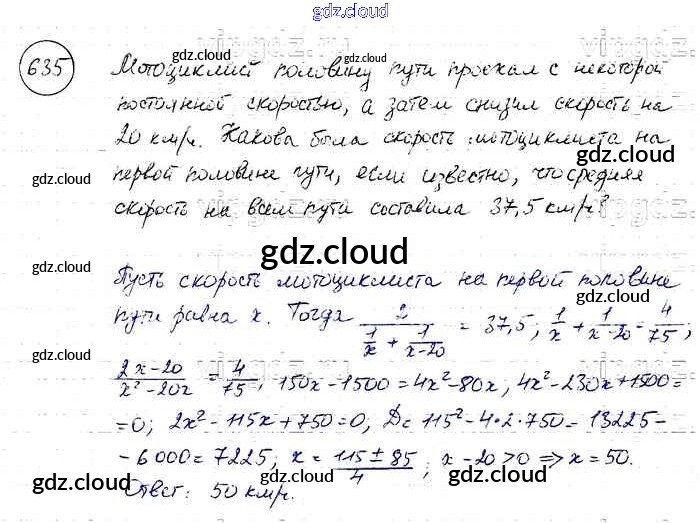 gdz.cloud
635 Мотоциклист половину пути проехал с некоторой
постоянной скоростью, а затем снизил скорость на
20 км/ч. Какова была скорость мотоциклиста на
первой половине пути, если известно, что средняя
скорость на всем пути составила 37,5 км/ч?
gdz.cloud
Пусть скорость мотоциклиста на первой половине
пути равна x. Тогда 2/(1/x + 1/(x-20)) = 37,5; 1/x + 1/(x-20) = 4/75;
(2x-20)/(x²-20x) = 4/75; 150x-1500=4x²-80x; 4x²-230x+1500=
=0; 2x²-115x+750=0; D= 115²-4·2·750= 13225-
-6000=7225; x = (115±85)/4; x-20>0 ⇒ x=50.
Ответ: 50 км/ч.